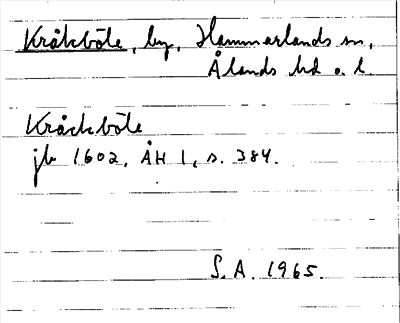 Kråkböle, by, Hammarlands sn,
Ålands hd o. l.
Kråckböle
jb 1602, ÅH 1, s. 384.
S. A. 1965.